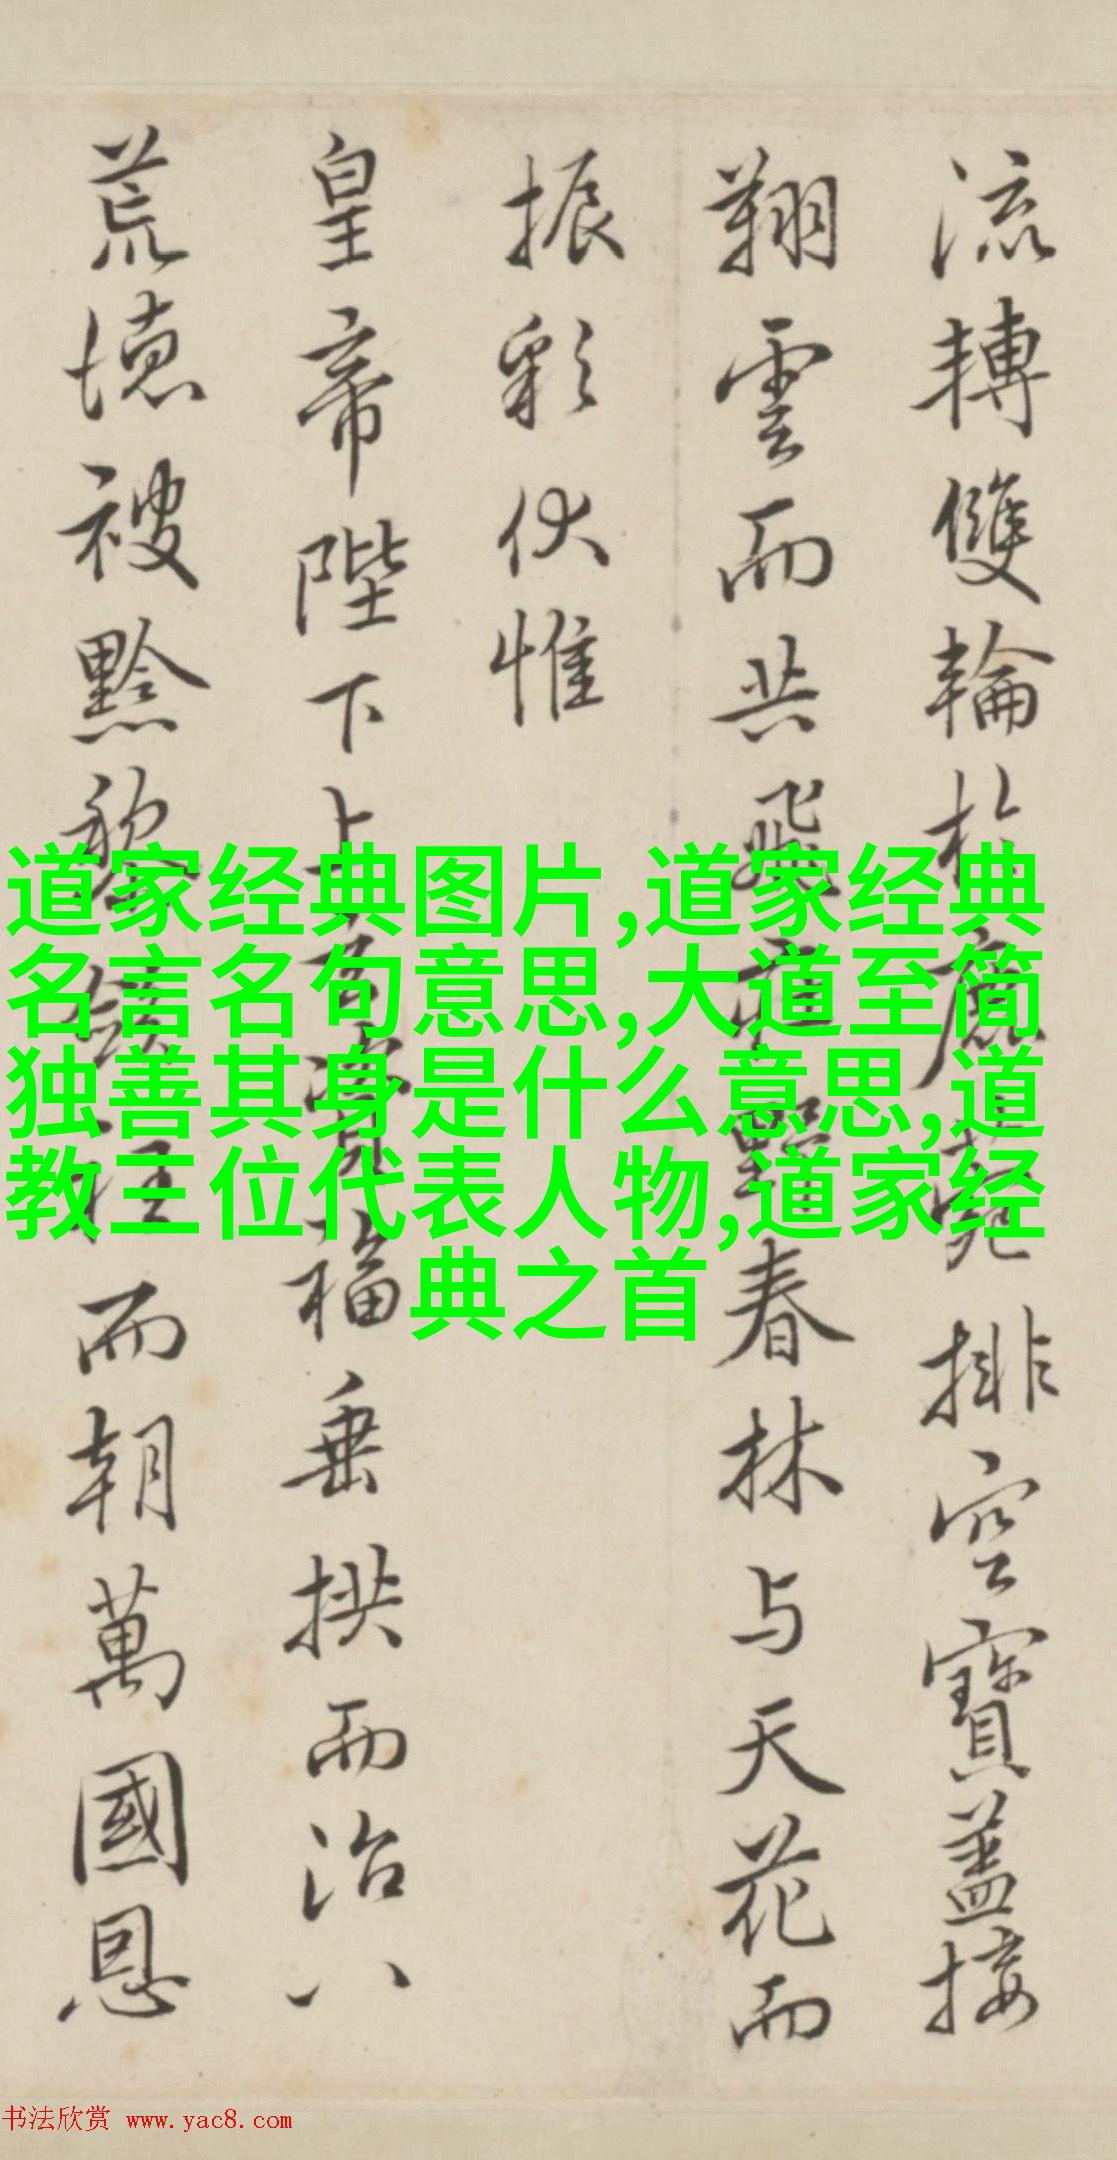 流轉雙輪於鹿菀排空寶蓋接
翔雲而共飛莊野春林与天花而
振彩伏惟
皇帝陛下上玄資福垂拱而治八
荒德被黔黎斂衽而朝萬國恩
道家经典图片,道家经典
名言名句意思,大道至简
独善其身是什么意思,道
教三位代表人物,道家经
典之首
书法欣赏 www.yac8.com